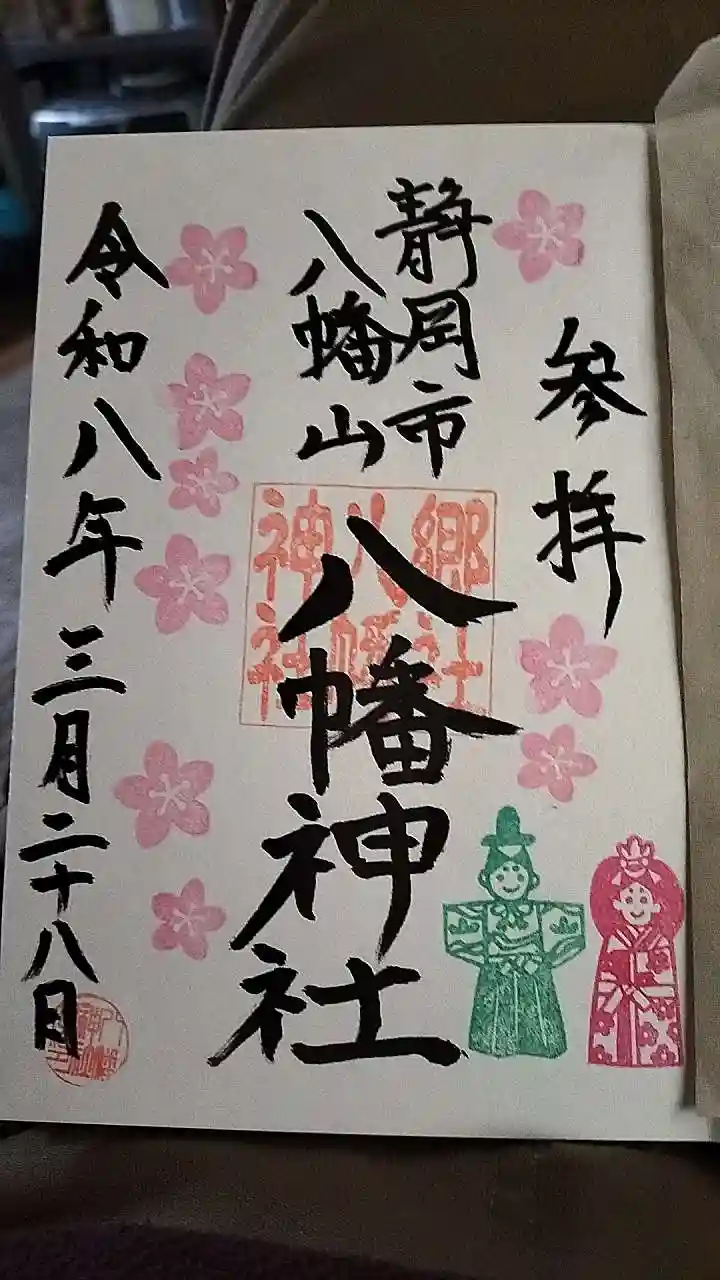 参拝
静岡市
八幡山
郷社
八幡
神社
八幡神社
令和八年三月二十八日